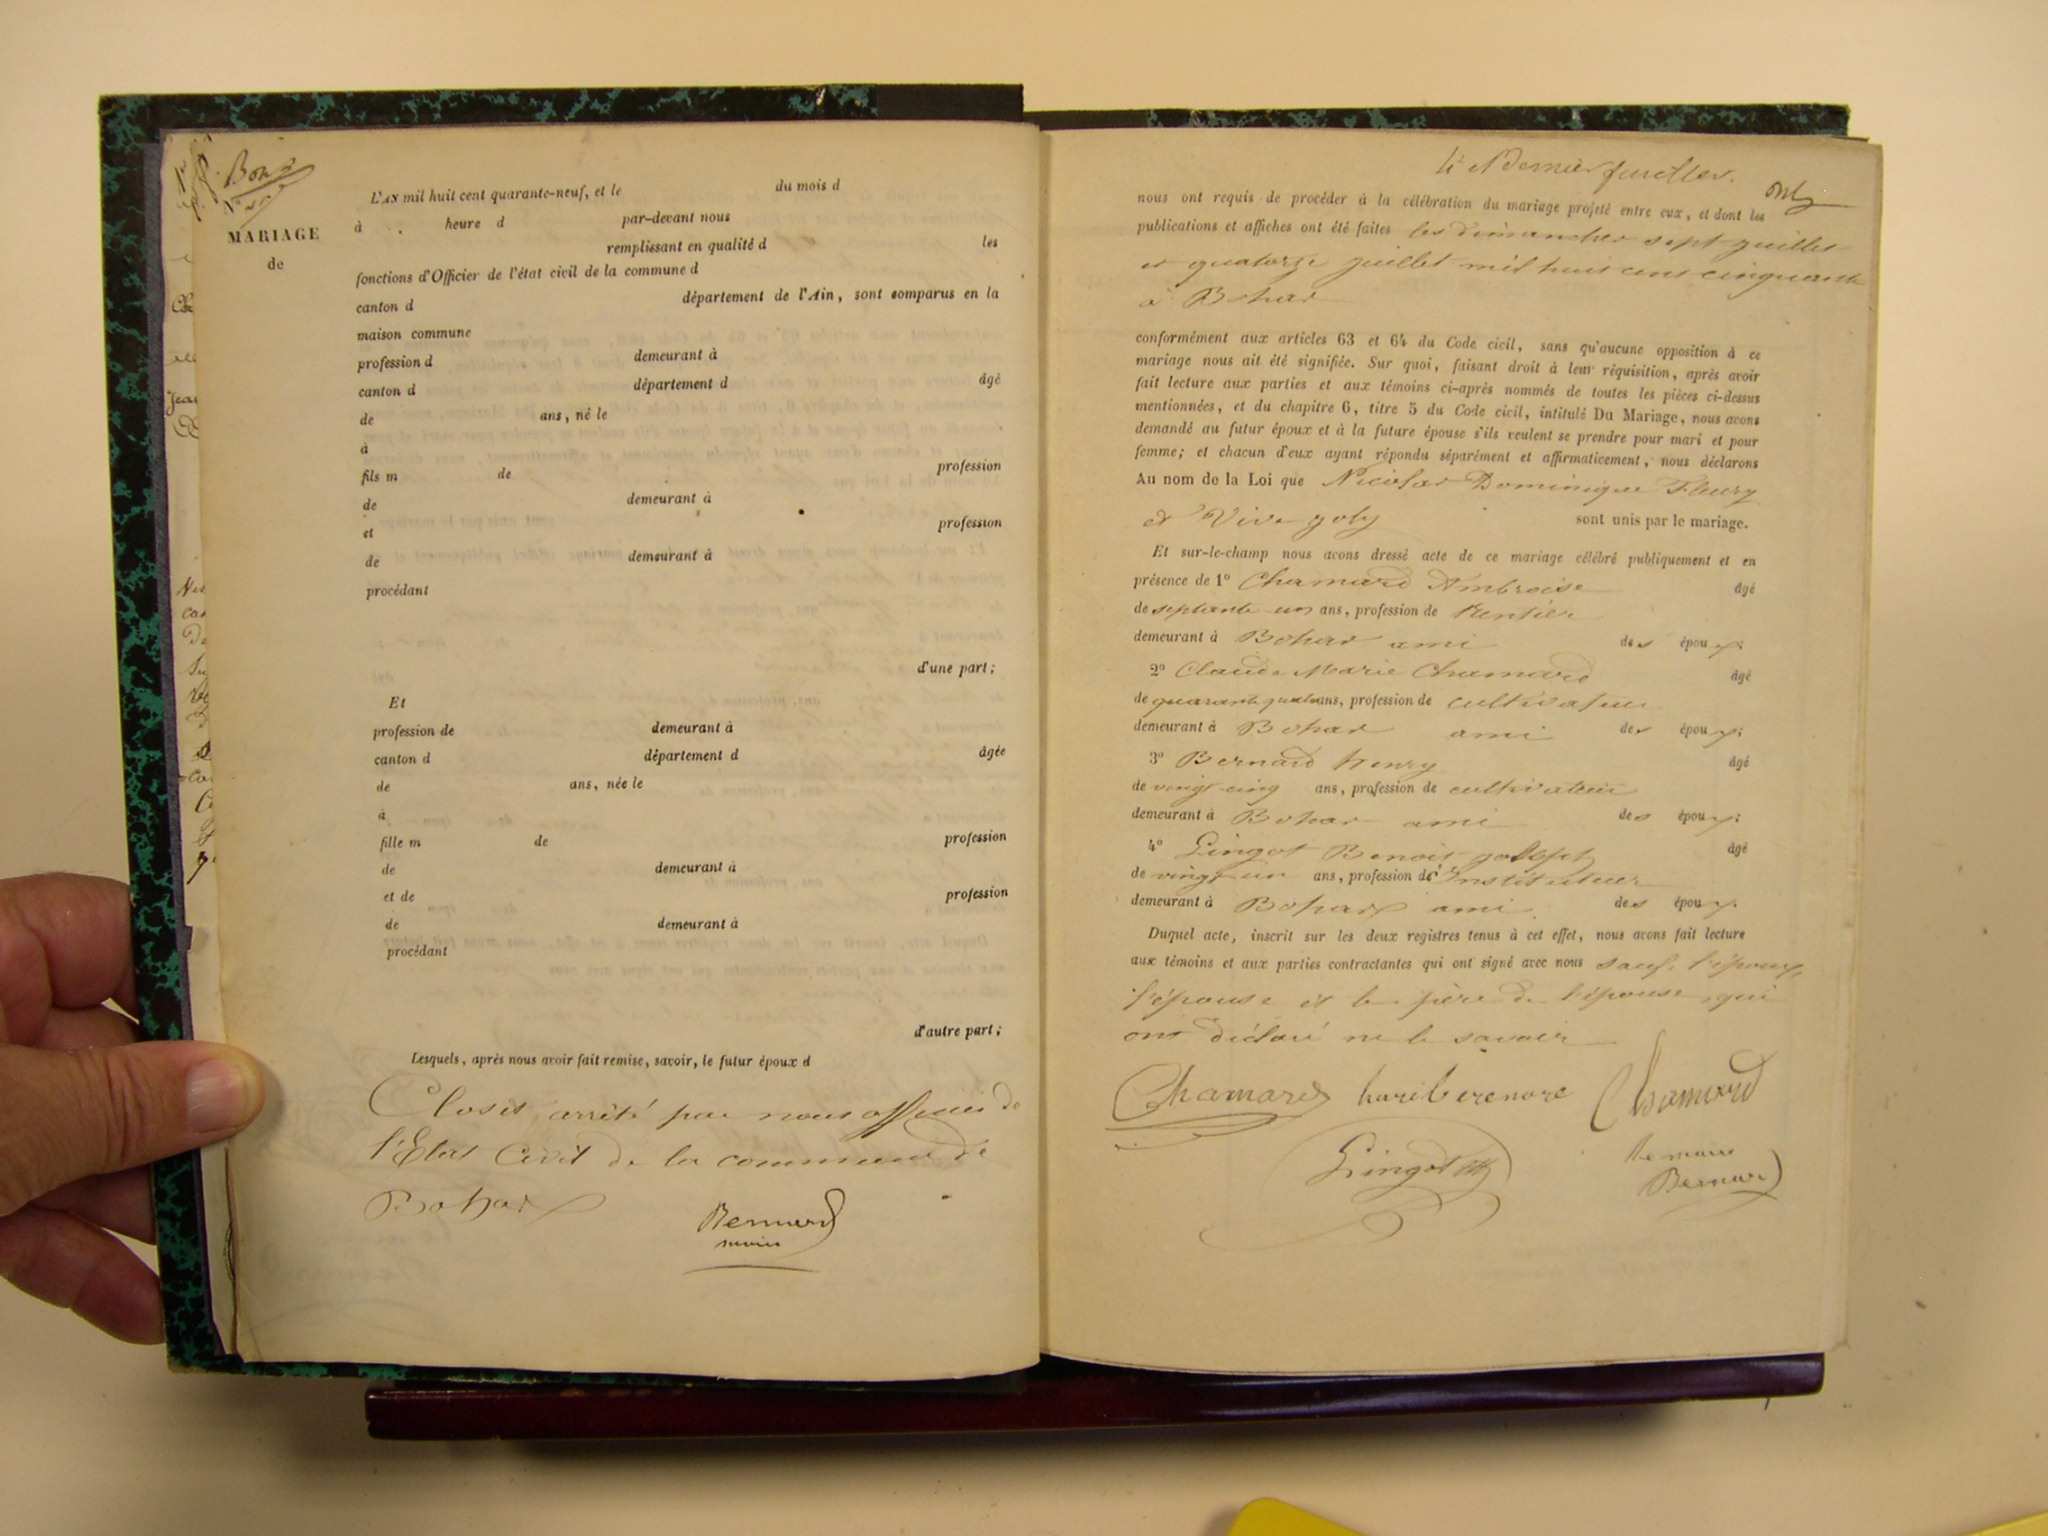 Bon
MARIAGE
de
L'AN mil huit cent quarante-neuf, et le du mois d
à heure d par-devant nous
remplissant en qualité d les
fonctions d'Officier de l'état civil de la commune d
canton d département de l'Ain, sont comparus en la
maison commune
profession d demeurant à
canton d département d âgé
de ans, né le
à
fils m de profession
de demeurant à
et profession
de demeurant à
procédant
d'une part;
Et
profession de demeurant à
canton d département d âgée
de ans, née le
à
fille m de profession
de demeurant à
et de profession
de demeurant à
procédant
d'autre part;
Lesquels, après nous avoir fait remise, savoir, le futur époux d
Clos et arrêté par nous officier de
l'Etat Civil de la commune de
Bohas
Bernard
maire
4e et dernier feuillet.
nous ont requis de procéder à la célébration du mariage projeté entre eux, et dont les
publications et affiches ont été faites les dimanches sept juillet
et quatorze juillet mil huit cent cinquante
à Bohas
conformément aux articles 63 et 64 du Code civil, sans qu'aucune opposition à ce
mariage nous ait été signifiée. Sur quoi, faisant droit à leur réquisition, après avoir
fait lecture aux parties et aux témoins ci-après nommés de toutes les pièces ci-dessus
mentionnées, et du chapitre 6, titre 5 du Code civil, intitulé Du Mariage, nous avons
demandé au futur époux et à la future épouse s'ils veulent se prendre pour mari et pour
femme; et chacun d'eux ayant répondu séparément et affirmativement, nous déclarons
Au nom de la Loi que Nicolas Dominique Fleury
et Vive joly sont unis par le mariage.
Et sur-le-champ nous avons dressé acte de ce mariage célébré publiquement et en
présence de 1° Chamard Ambroise âgé
de septante un ans, profession de Rentier
demeurant à Bohas ami des époux;
2° Claude Marie Chamard âgé
de quarante quatre ans, profession de cultivateur
demeurant à Bohas ami des époux;
3° Bernard henry âgé
de vingt cinq ans, profession de cultivateur
demeurant à Bohas ami des époux;
4° Gingot Benoit joseph âgé
de vingt un ans, profession d'Instituteur
demeurant à Bohas ami des époux.
Duquel acte, inscrit sur les deux registres tenus à cet effet, nous avons fait lecture
aux témoins et aux parties contractantes qui ont signé avec nous sauf l'époux,
l'épouse et le père de l'épouse, qui
ont déclaré ne le savoir
Chamard Chamard
Gingot
le maire
Bernard